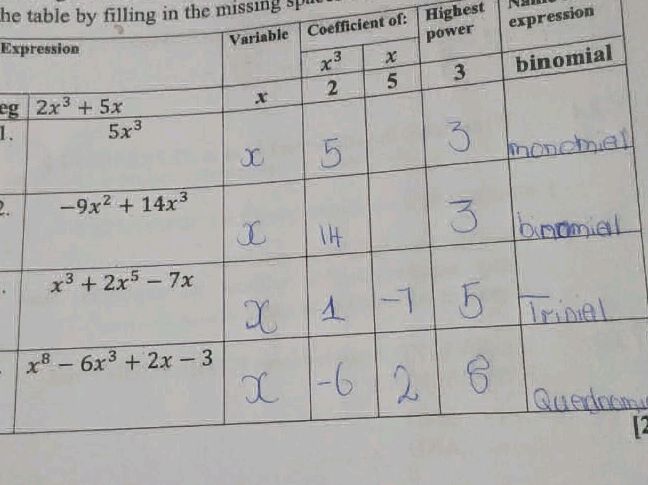 he table by filling in the missing
Expression Variable Coefficient of: Highest power expression
x³ x
eg 2x³ + 5x x 2 5 3 binomial
1. 5x³ x 5 3 monomial
2. −9x² + 14x³ x 14 3 binomial
x³ + 2x⁵ − 7x x 1 -7 5 Trinial
x⁸ − 6x³ + 2x − 3 x -6 2 8
[2